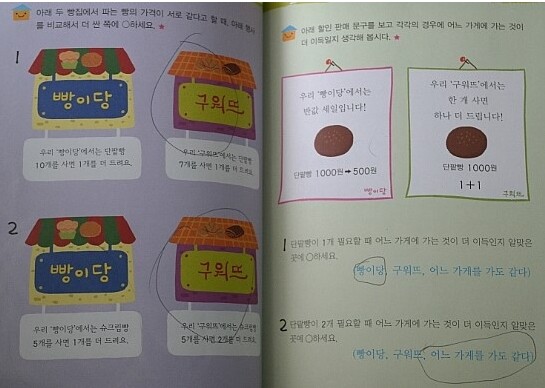 아래 두 빵집에서 파는 빵의 가격이 서로 같다고 할 때, 아래 행사
를 비교해서 더 싼 쪽에 ○하세요. ★
1
빵이당
구워뜨
우리 '빵이당'에서는 단팥빵
10개를 사면 1개를 더 드려요.
우리 '구워뜨'에서는 단팥빵
7개를 사면 1개를 더 드려요.
2
빵이당
구워뜨
우리 '빵이당'에서는 슈크림빵
5개를 사면 1개를 더 드려요.
우리 '구워뜨'에서는 슈크림빵
5개를 사면 2개를 더 드려요.
아래 할인 판매 문구를 보고 각각의 경우에 어느 가게에 가는 것이
더 이득일지 생각해 봅시다. ★
우리 '빵이당'에서는
반값 세일입니다!
단팥빵 1000원→500원
빵이당
우리 '구워뜨'에서는
한 개 사면
하나 더 드립니다!
단팥빵 1000원
1+1
구워뜨
1 단팥빵이 1개 필요할 때 어느 가게에 가는 것이 더 이득인지 알맞은
곳에 ○하세요.
(빵이당, 구워뜨, 어느 가게를 가도 같다)
2 단팥빵이 2개 필요할 때 어느 가게에 가는 것이 더 이득인지 알맞은
곳에 ○하세요.
(빵이당, 구워뜨, 어느 가게를 가도 같다)